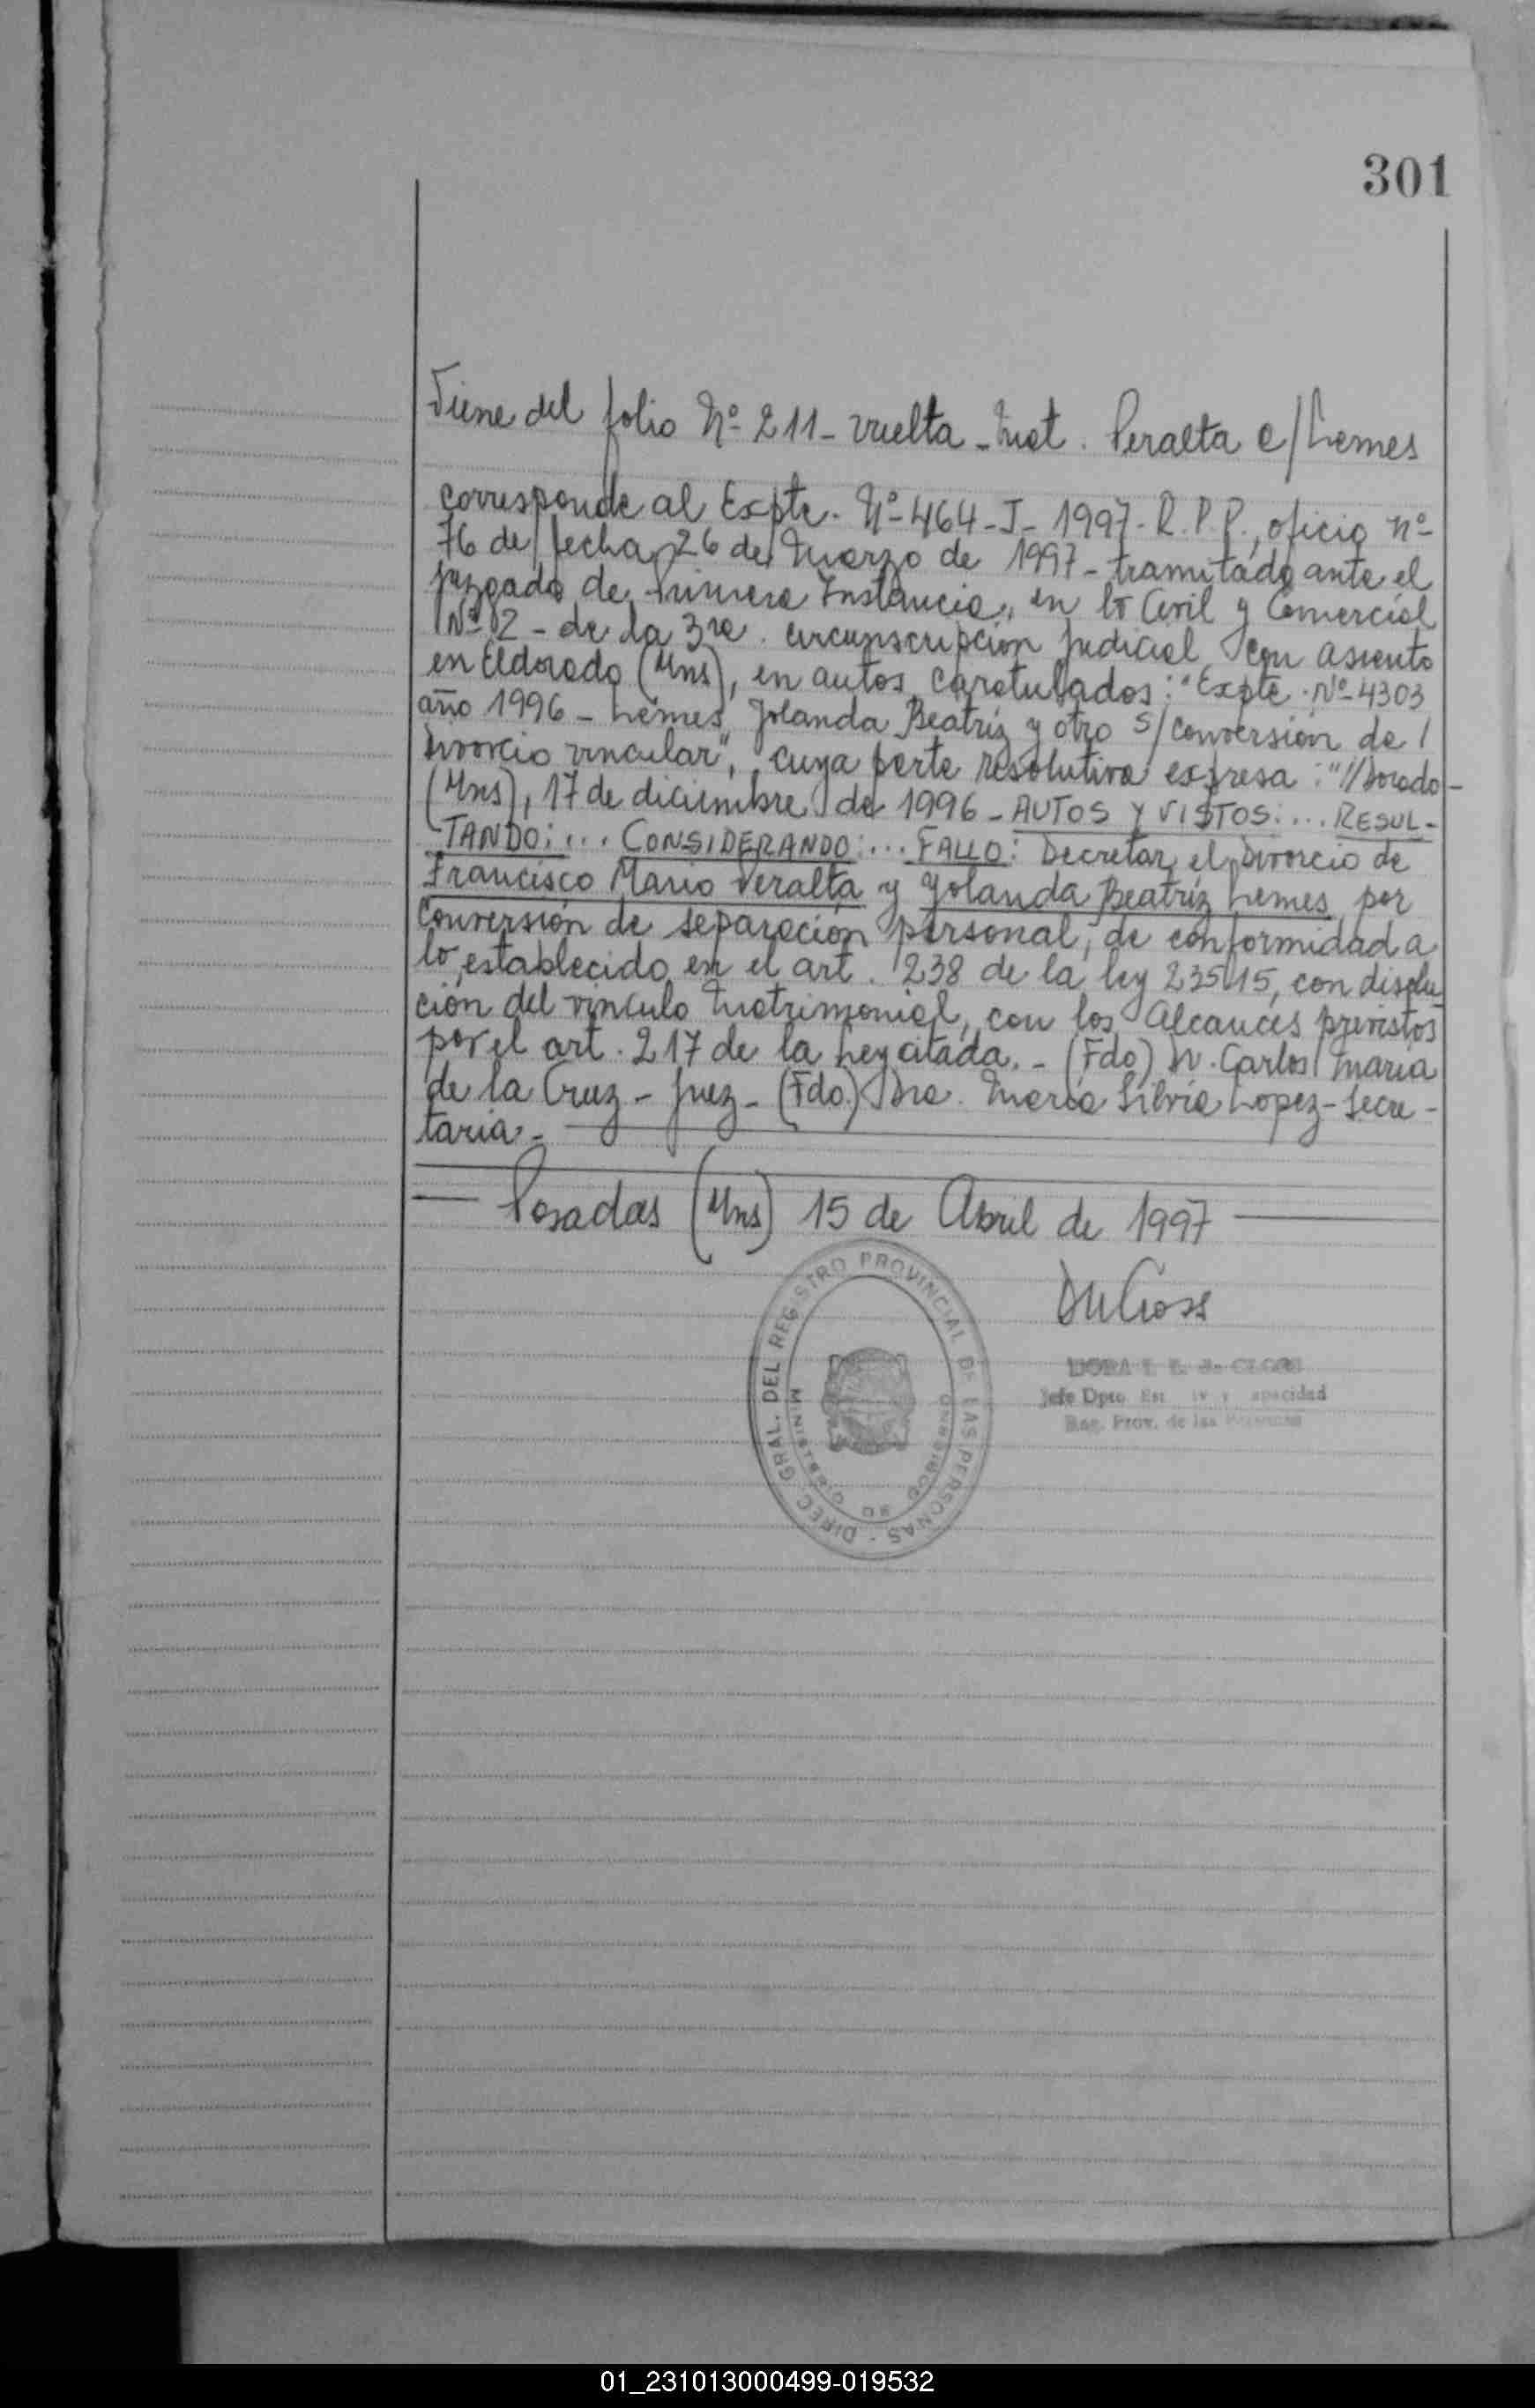 301
Viene del folio Nº 211- vuelta - Mat. Peralta c/Lemes
corresponde al Expte. Nº 464-J-1997- R.P.P., oficio nº
76 de fecha 26 de Marzo de 1997- tramitado ante el
juzgado de Primera Instancia, en lo Civil y Comercial
Nº 2 - de la 3ra. circunscripción Judicial con asiento
en Eldorado (Mns), en autos caratulados: "Expte. Nº 4303
año 1996 - Lemes, Yolanda Beatríz y otro S/Conversión de /
Divorcio vincular", cuya parte resolutiva expresa: "//dorado-
(Mns), 17 de diciembre de 1996 - AUTOS Y VISTOS: ... RESUL-
TANDO: ... CONSIDERANDO: ... FALLO: Decretar el Divorcio de
Francisco Mario Peralta y Yolanda Beatríz Lemes, por
Conversión de separación personal, de conformidad a
lo establecido en el art. 238 de la ley 23515, con disolu
ción del vínculo Matrimonial, con los Alcances previstos
por el art. 217 de la Ley citada. - (Fdo) Dr. Carlos María
de la Cruz - Juez - (Fdo.) Dra. María Silvia Lopez - Secre-
taria -
Posadas (Mns) 15 de Abril de 1997
DIREC. GRAL. DEL REGISTRO PROVINCIAL DE LAS PERSONAS -
MINISTERIO DE GOBIERNO
DORA
Jefe Dpto. Est
Reg. Prov. de las
01_231013000499-019532